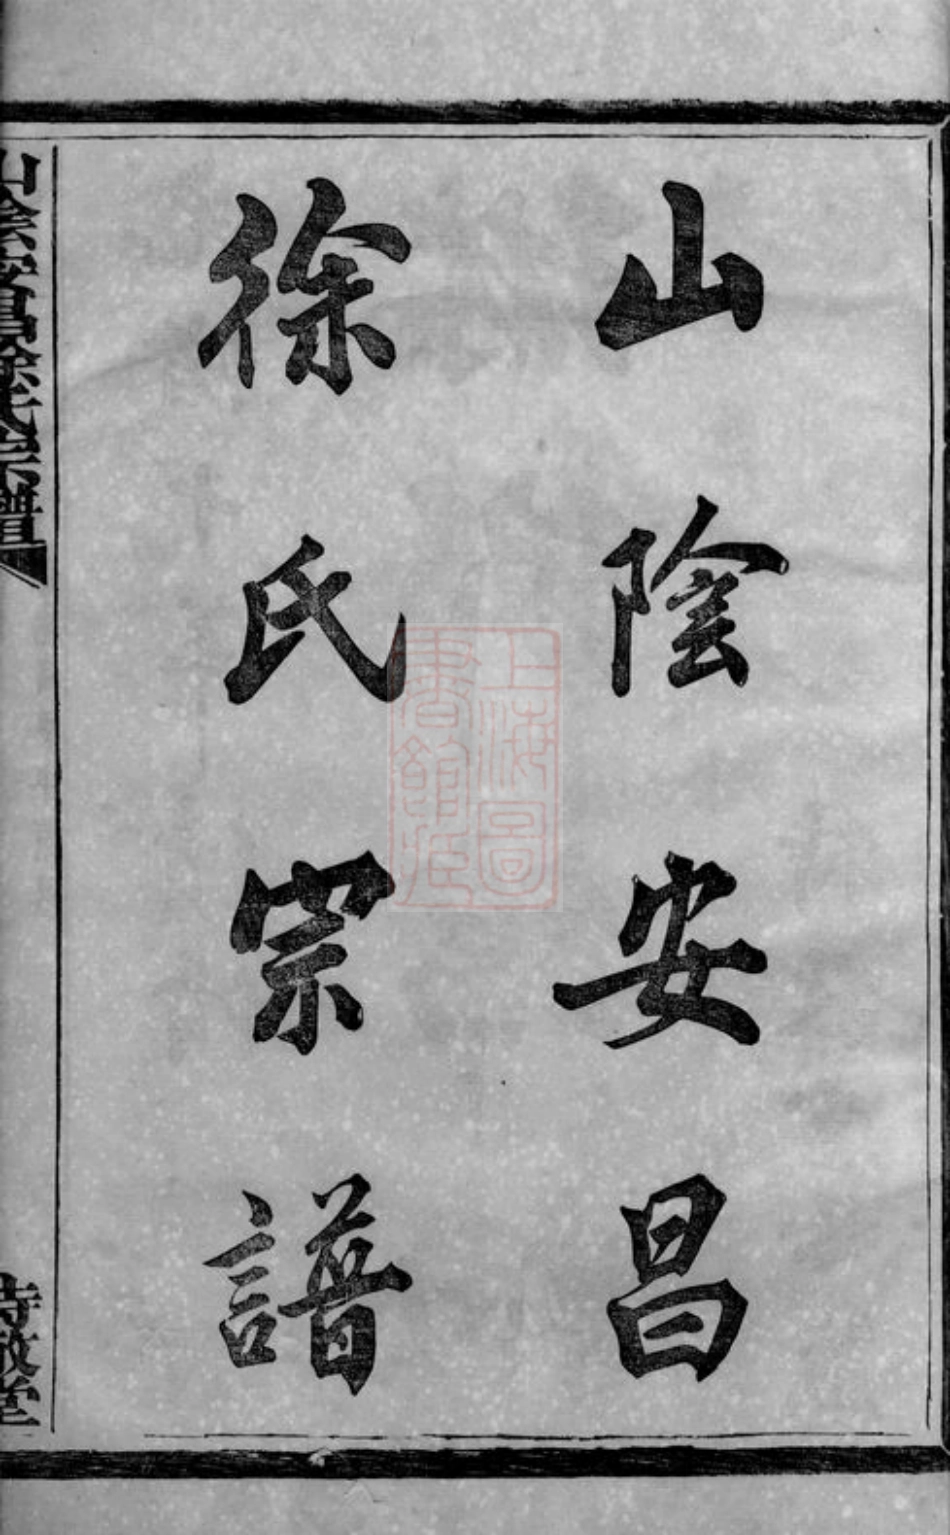 山陰安昌
徐氏宗譜
山陰安昌徐氏宗譜
上海圖
書館藏